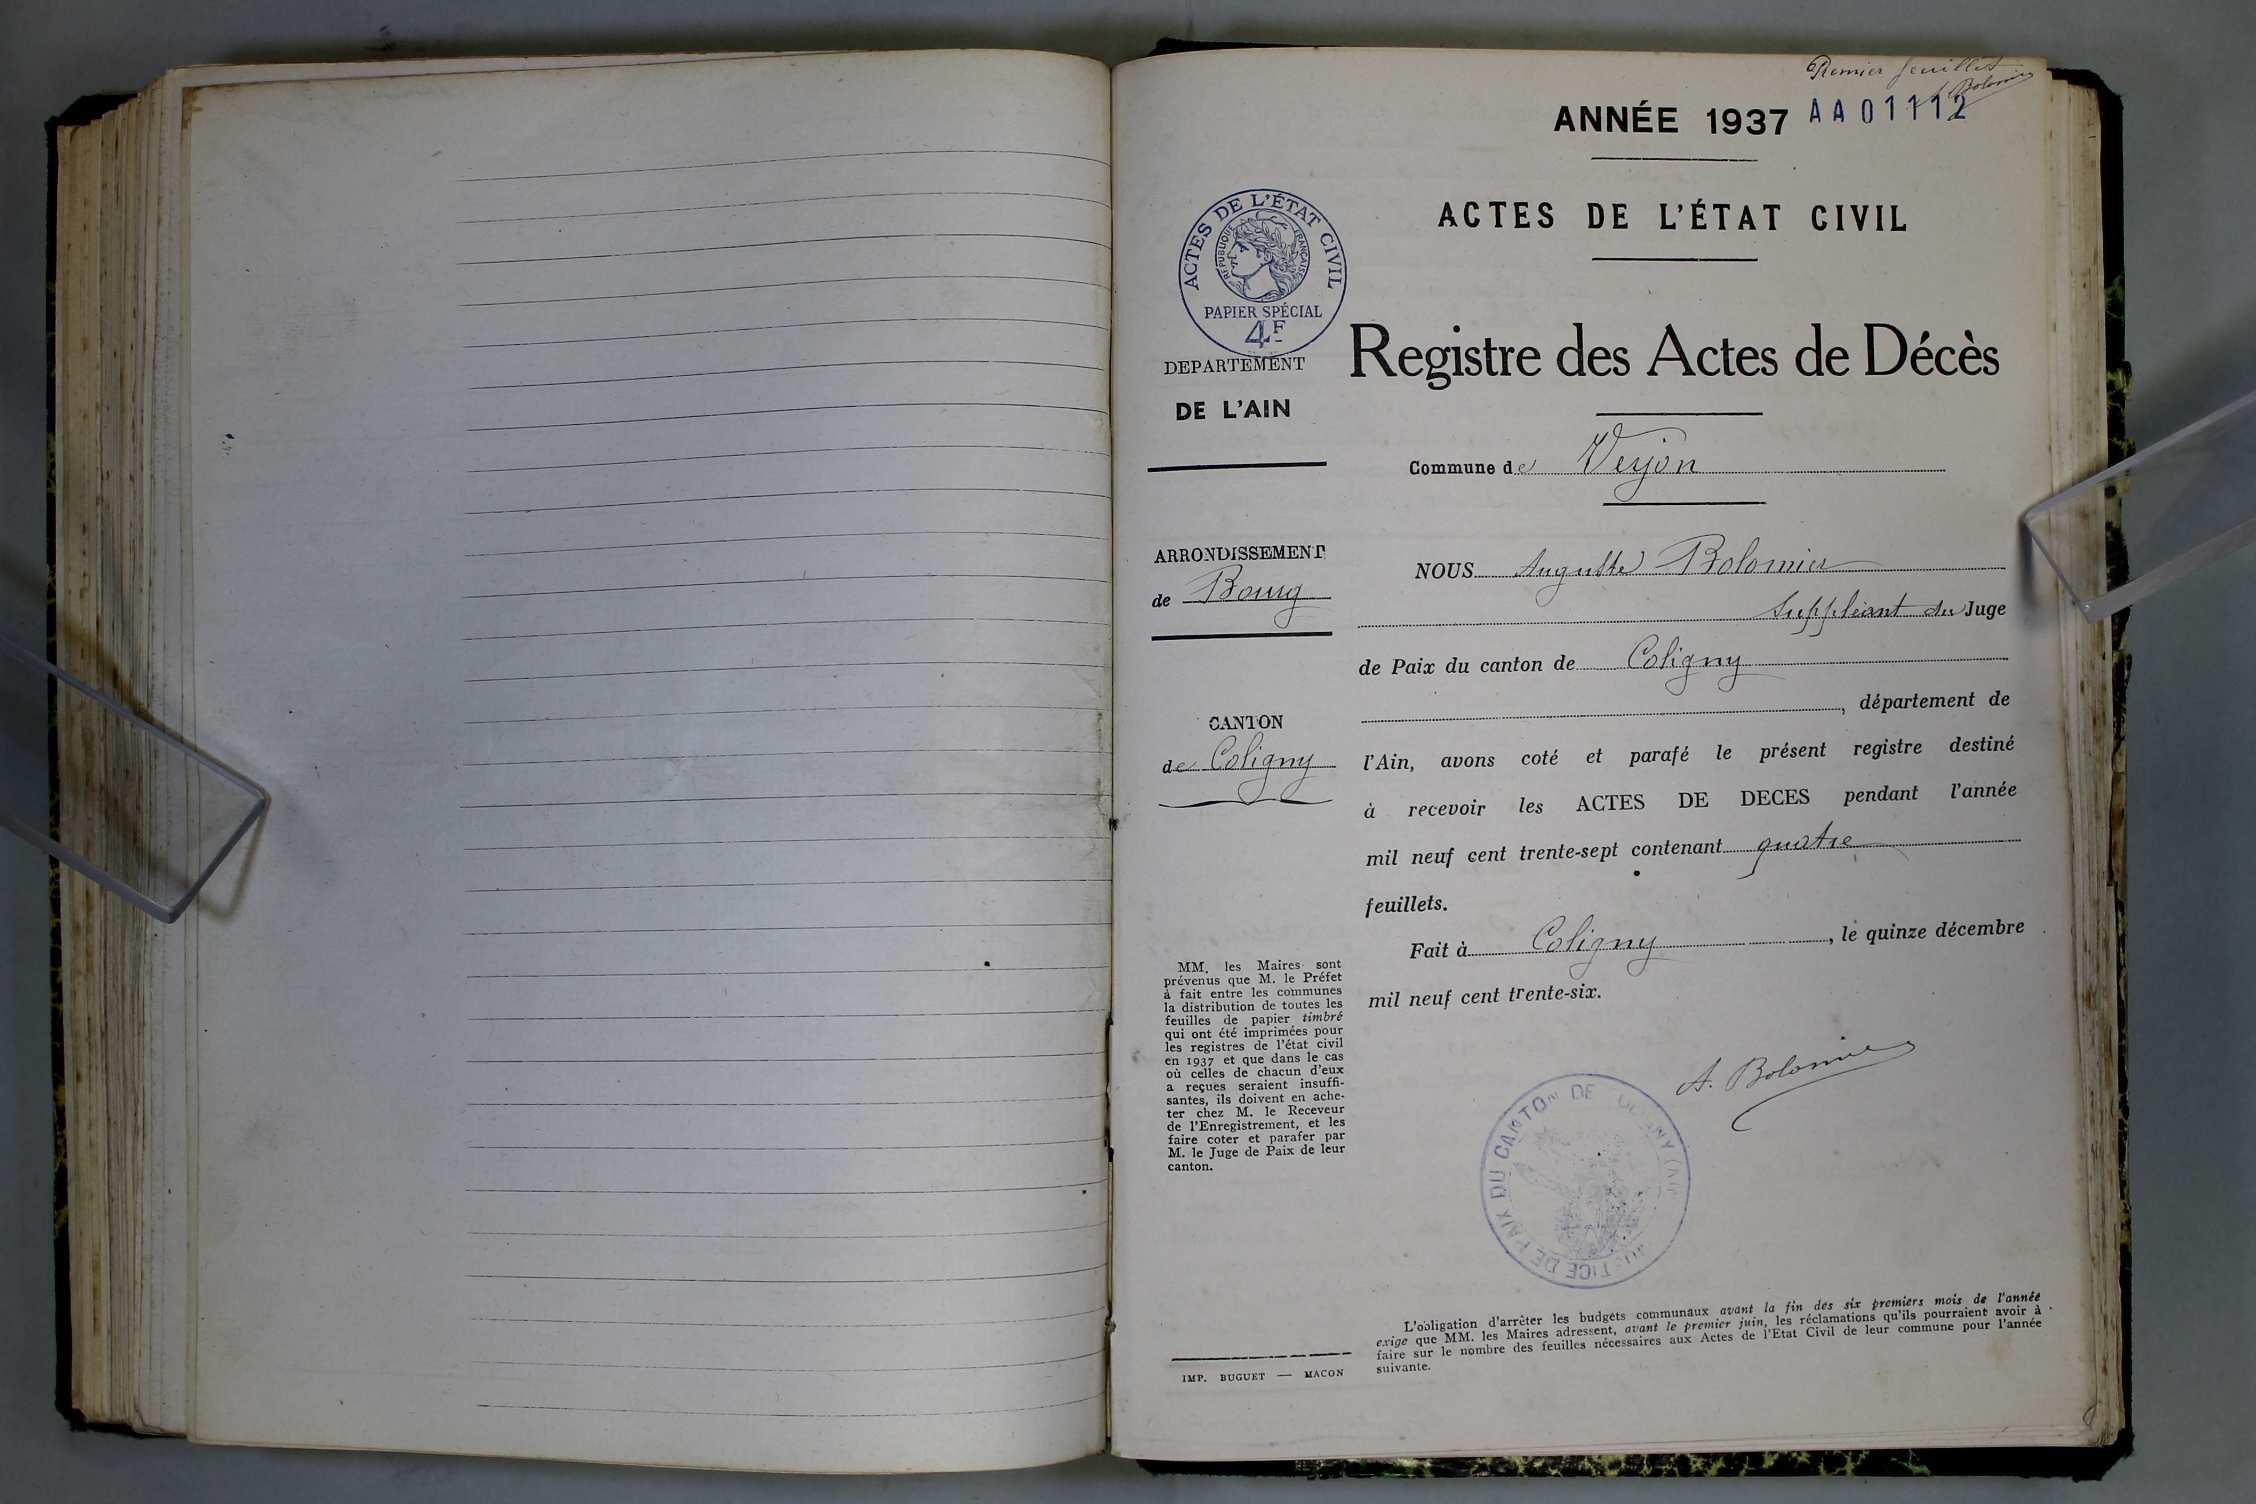 Premier feuillet
A. Bolomier
ANNÉE 1937 AA01112
ACTES DE L'ÉTAT CIVIL
ACTES DE L'ÉTAT CIVIL
RÉPUBLIQUE FRANÇAISE
PAPIER SPÉCIAL
4F
DEPARTEMENT
DE L'AIN
Registre des Actes de Décès
Commune de Verjon
ARRONDISSEMENT
de Bourg
CANTON
de Coligny
NOUS Auguste Bolomier
Suppléant du Juge
de Paix du canton de Coligny
, département de
l'Ain, avons coté et parafé le présent registre destiné
à recevoir les ACTES DE DECES pendant l'année
mil neuf cent trente-sept contenant quatre
feuillets.
Fait à Coligny, le quinze décembre
mil neuf cent trente-six.
A. Bolomier
JUSTICE DE PAIX DU CANTON DE COLIGNY (AIN)
MM. les Maires sont
prévenus que M. le Préfet
à fait entre les communes
la distribution de toutes les
feuilles de papier timbré
qui ont été imprimées pour
les registres de l'état civil
en 1937 et que dans le cas
où celles de chacun d'eux
a reçues seraient insuffi-
santes, ils doivent en ache-
ter chez M. le Receveur
de l'Enregistrement, et les
faire coter et parafer par
M. le Juge de Paix de leur
canton.
IMP. BUGUET — MACON
L'obligation d'arrêter les budgets communaux avant la fin des six premiers mois de l'année
exige que MM. les Maires adressent, avant le premier juin, les réclamations qu'ils pourraient avoir à
faire sur le nombre des feuilles nécessaires aux Actes de l'Etat Civil de leur commune pour l'année
suivante.